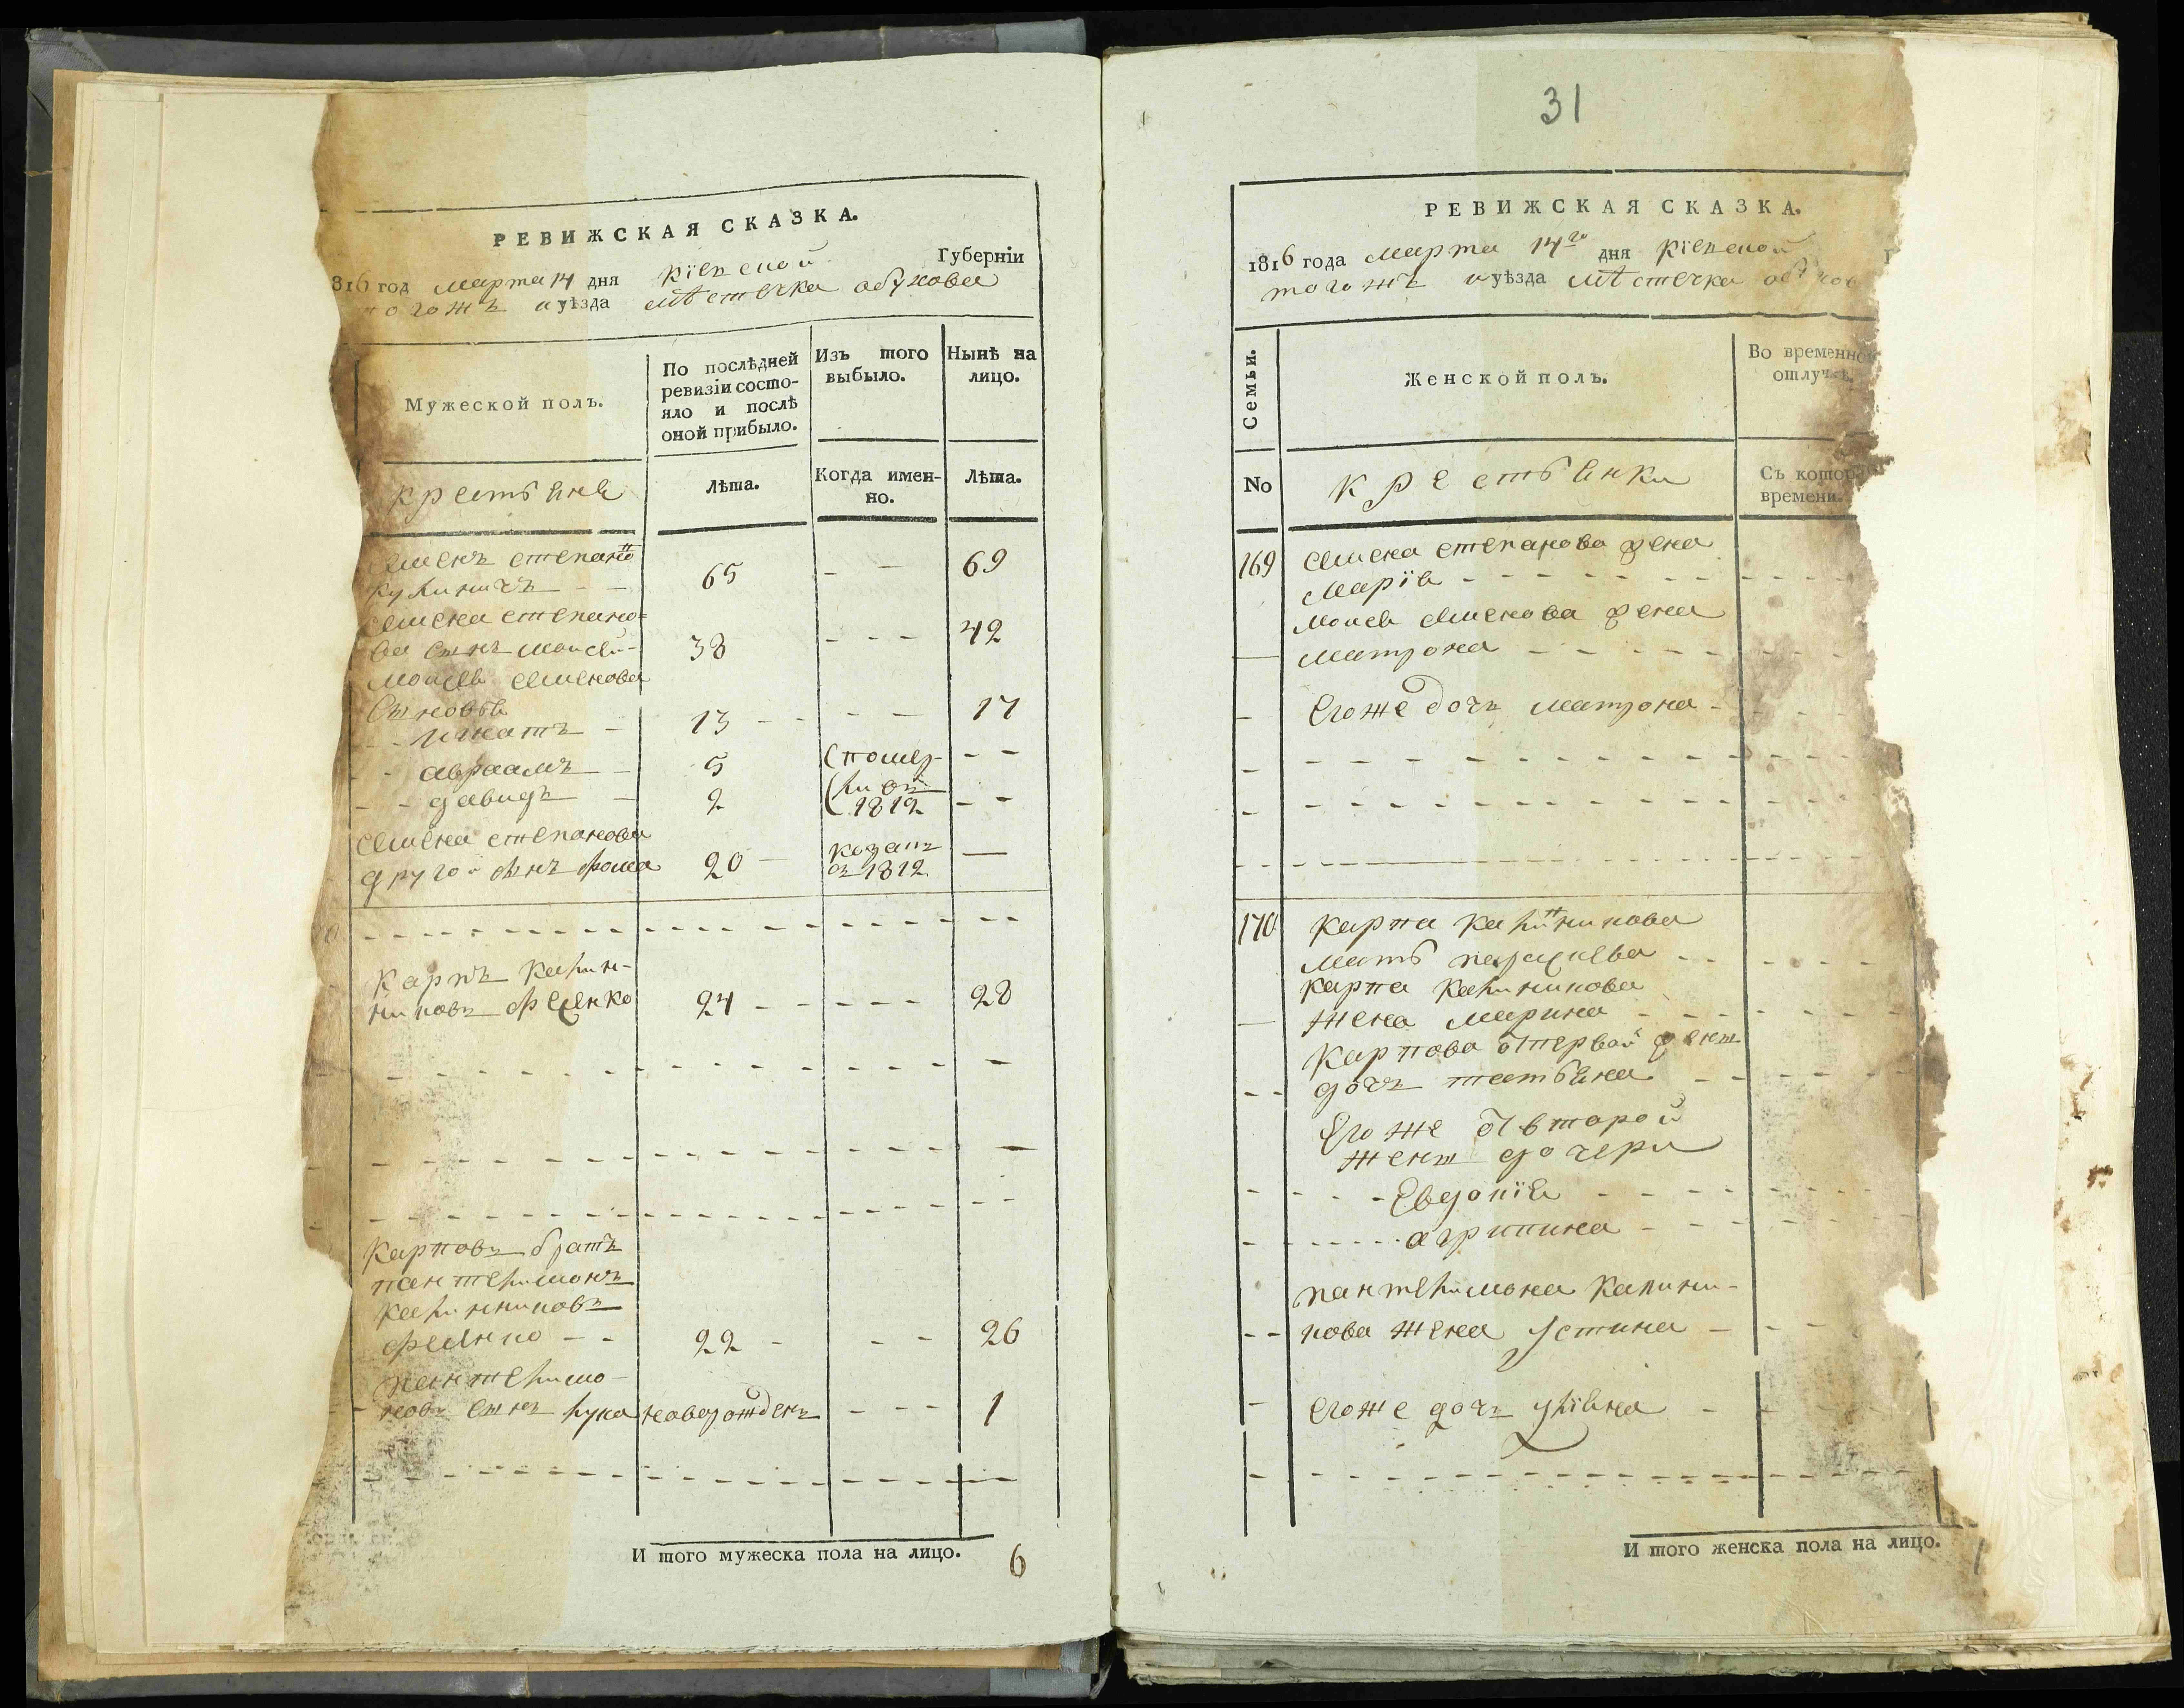 РЕВИЖСКАЯ СКАЗКА.
816 год марта 14 дня Кіевской Губерніи
тогожъ уѣзда мѣстечка обухова
Мужеской полъ.
По послѣдней
ревизіи состо-
яло и послѣ
оной прибыло.
Изъ того
выбыло.
Нынѣ на
лицо.
крестьяне
Лѣта.
Когда имен-
но.
Лѣта.
семенъ степано
65 - - 69
семена степано=
ва сынъ моисей-
38 - - - 42
моисея семенова
сыновья
игнатъ - 13 - - - - 17
- авраамъ - 5 - -
- - давидъ - 2 - -
(помер-
ли въ
1812
семена степанова
другой сынъ фома 20 - —
въ 1812
Карпъ Калин-
никовъ фесенко 24 - - - - 28
Карповъ братъ
пантелимонъ
Калинниковъ
фесенко - - 22 - - - 26
пантелимо-
новъ сынъ лука новорожденъ - - - 1
И того мужеска пола на лицо. 6
31
РЕВИЖСКАЯ СКАЗКА.
1816 года марта 14го дня Кіевской Г
тогожъ уѣзда мѣстечка обухов
Семьи.
Женской полъ.
Во временной
отлучкѣ.
No
крестьянки
Съ котор
времени.
169 семена степанова жена
марія - - - - - -
моисея семенова жена
— матрона - - - - -
- егоже дочь матрона -
170 Карпа Калинникова
мать параскева - -
Карпа Калинникова
— жена марина - -
Карпова от первой жены
- - дочь татьяна - -
Его же от второй
жены дочери
- - - - Евдокія - - - -
- - - - - агрипина - - -
пантелимона Калини-
- - кова жена устина -
- егоже дочь уліяна - -
И того женска пола на лицо.